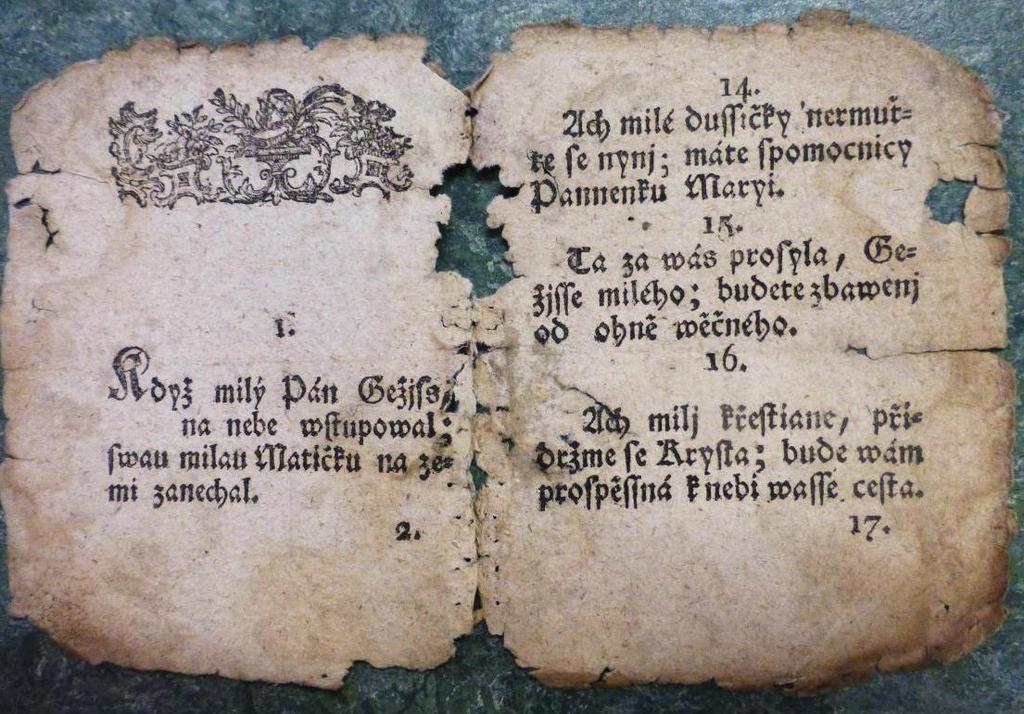 1.
Když milý Pán Gežjſs,
na nebe wſtupowal;
ſwau milau Matičku na ze⸗
mi zanechal.
2.
14.
Ach milé duſſičky nermuť⸗
te ſe nynj; máte ſpomocnicy
Pannenku Maryi.
15.
Ta za wás proſyla, Ge⸗
žjſſe milého; budete zbawenj
od ohně wěčného.
16.
Ach milj křeſtiane, při⸗
držme ſe Kryſta; bude wám
proſpěſſná k nebi waſſe ceſta.
17.